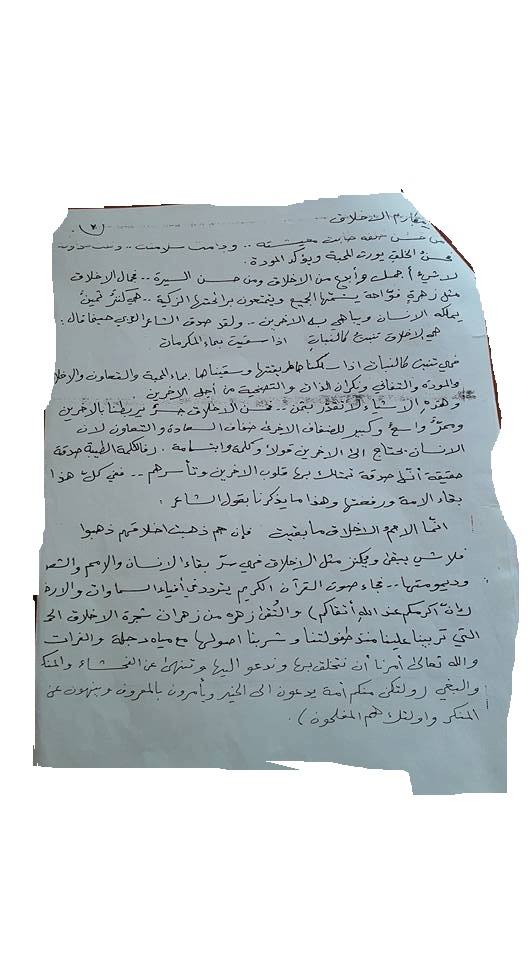 مكارم الاخلاق (٧)
من حسن خلقه طابت معيشته .. ودامت سلامته ..
حسن الخلق يورث المحبة ويؤكد المودة .
لا شيء أجمل وأبدع من الاخلاق ومن حسن السيرة .. فجمال الاخلاق
مثل زهرة فوّاحة يشتمها الجميع ويتمتعون برائحتها الزكية .. هي كنز ثمين
يملكه الانسان ويباهي به الآخرين .. ولقد صدق الشاعر العربي حينما قال :
هي الاخلاق تنبت كالنبات اذا سقيت بماء المكرمات
فهي تنبت كالنبات اذا سلكنا طريقتها وسقيناها بماء المحبة والتعاون والاخلا
والمودة والتفاني ونكران الذات والتضحية من أجل الاخرين
وهذه الاشياء لا تقدّر بثمن .. فحسن الاخلاق جسر يربطنا بالآخرين
وممرٌ واسع وكبير للضفاف الاخرى ضفاف السعادة والتعاون لان
الانسان يحتاج الى الآخرين قولا وكلمة وابتسامة . فالكلمة الطيبة صدقة
حقيقة أنها صدقة تمتلك بها قلوب الآخرين وتأسرهم .. ففي كل هذا
بقاء الامة ورفعتها وهذا ما يذكرنا بقول الشاعر :
انما الامم الاخلاق ما بقيت فإن هم ذهبت اخلاقهم ذهبوا
فلا شيء يبقى ويكنز مثل الاخلاق فهي سرّ بقاء الانسان والامم والشعو
وديمومتها .. فجاء صوت القرآن الكريم يتردد في أفياء السماوات والارض
(إنّ أكرمكم عند الله أتقاكم) والتُقى زهرة من زهرات شجرة الاخلاق
التي تربينا عليها منذ طفولتنا وشربنا اصولها مع مياه دجلة والفرات
والله تعالى أمرنا أن نتخلق بها وندعو اليها وتنهى عن الفحشاء والمنكر
والبغي (ولتكن منكم أمة يدعون الى الخير ويأمرون بالمعروف وينهون عن
المنكر واولئك هم المفلحون) .